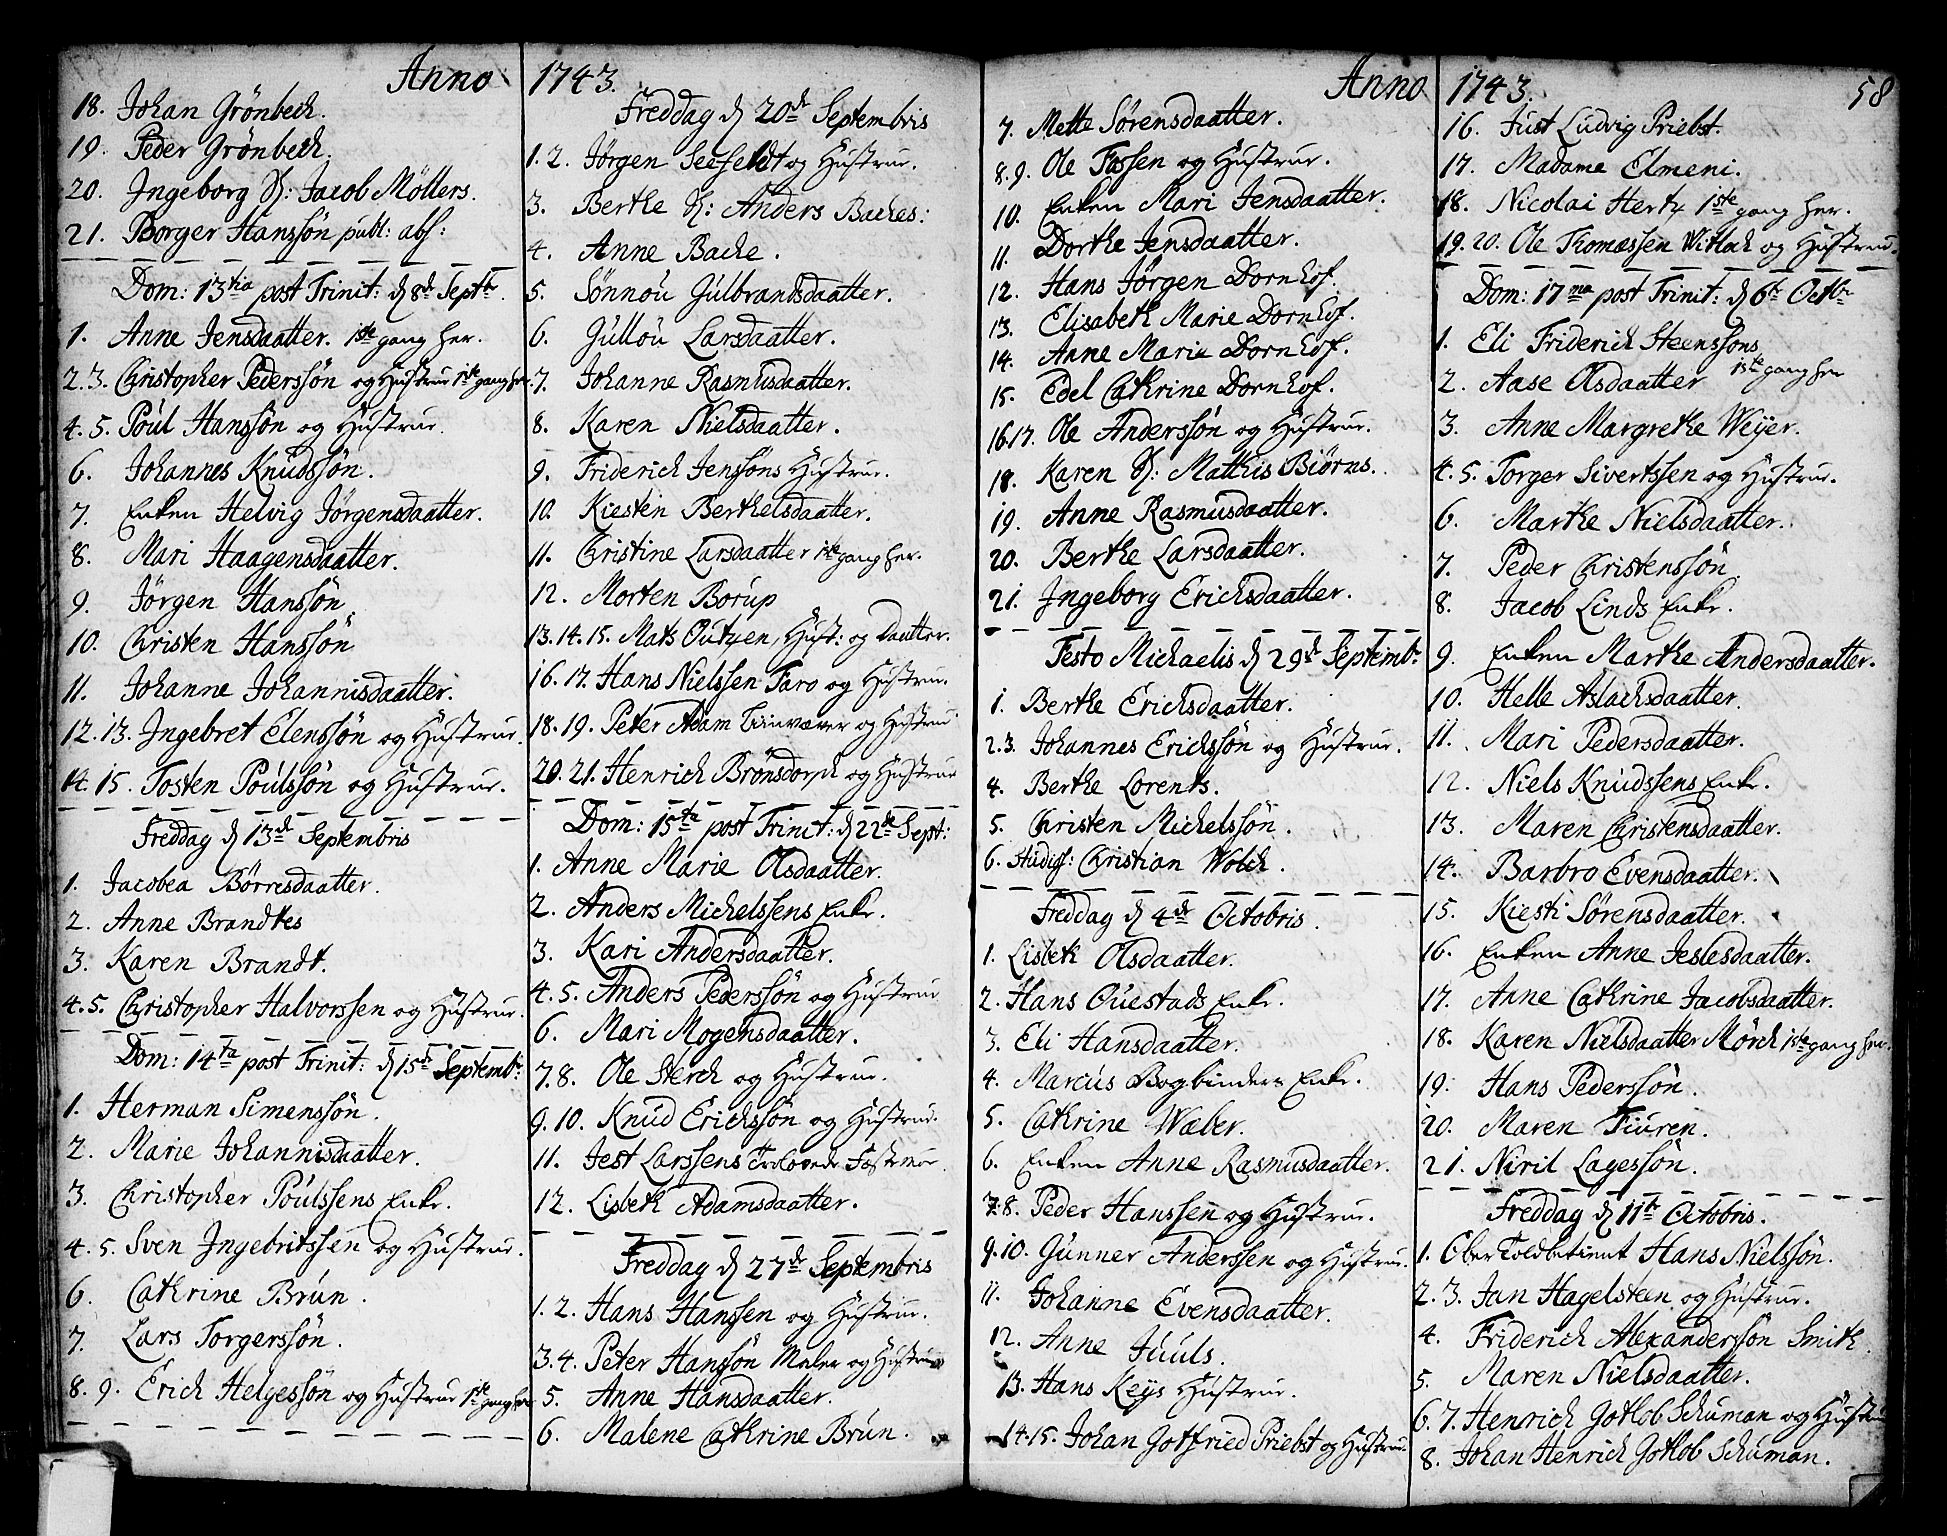 Anno 1743.
18. Johan Grönbech.
19. Peder Grönbech
20. Ingeborg S: Jacob Möllers.
21. Borger Hanssön, publ: abs:
Dom: 13tia post Trinit: d 8de Septbr.
1. Anne Jensdaatter. 1ste gang her.
2.3. Christopher Pederssön og Hustrue 1ste gang her.
4.5. Poúl Hanssön og Hústrue.
6. Johannes Knúdssön.
7. Enken Helvig Jörgensdaatter.
8. Mari Haagensdaatter.
9. Jörgen Hanssön.
10. Christen Hanssön
11. Johanne Johannisdaatter.
12.13. Ingebret Elenssön og Hústrue.
14.15. Tosten Poúlssön og Hústrue.
Freddag d 13de Septembris
1. Jacobea Börresdaatter.
2. Anne Brandtes
3. Karen Brandt.
4.5. Christopher Halvorssen og Hústrue.
Dom: 14ta post Trinit: d 15de Septembr:
1. Herman Simenssön.
2. Marie Johannisdaatter.
3. Christopher Poúlssens Enke.
4.5. Sven Ingebritssen og Hústrue.
6. Cathrine Brún.
7. Lars Torgerssön.
8.9. Erich Helgessön og Hústrue 1ste gang her
Freddag d 20de Septembris
1.2. Jörgen Seefeldt og Hústrue.
3. Berthe S: Anders Baches:
4. Anne Bache.
5. Sönnoú Gúlbrandsdaatter.
6. Gúlloú Larsdaatter.
7. Johanne Rasmusdaatter.
8. Karen Nielsdaatter.
9. Friderich Jenssöns Hústrue.
10. Kiesten Berthelsdaatter.
11. Christine Larsdaatter 1ste gang her.
12. Morten Borúp
13.14.15. Mats Oútzen, Húst: og Daatter.
16.17. Hans Nielssen Faro og Hústrue.
18.19. Peter Adam og Hústrue
20.21. Henrich Brönsdorph og Hústrue
Dom: 15ta post Trinit: d 22de Sept:
1. Anne Marie Olsdaatter.
2. Anders Michelssens Enke.
3. Kari Andersdaatter.
4.5. Anders Pederssön og Hústrue
6. Mari Mogensdaatter.
7.8. Ole Sterch og Hústrue.
9.10. Knúd Erichssön og Hústrue.
11. Jest Larssens Trolovede Fæstemøe.
12. Lisbeth Adamsdaatter.
Freddag d 27de Septembris
1.2. Hans Hanssen og Hústrue.
3.4. Peter Hanssön Maler og Hústrue
5. Anne Hansdaatter.
6. Malene Cathrine Brún.
Anno 1743. 58
7. Mette Sörensdaatter.
8.9. Ole Fossen og Hústrue.
10. Enken Mari Jensdaatter.
11. Dorthe Jensdaatter.
12. Hans Jörgen Dornhof.
13. Elisabeth Marie Dornhof.
14. Anne Marie Dornhof.
15. Edel Cathrine Dornhof.
16.17. Ole Anderssön og Hústrue.
18. Karen S: Mathis Biörns.
19. Anne Rasmusdaatter.
20. Berthe Larsdaatter.
21. Ingeborg Erichsdaatter.
Festo Michaelis d 29de Septembr.
1. Berthe Erichsdaatter.
2.3. Johannes Erichssön og Hústrue.
4. Berthe Lorents.
5. Christen Michelssön.
6. Studios: Christian Wolch.
Freddag d 4de Octobris.
1. Lisbeth Olsdaatter.
2. Hans Oúestads Enke.
3. Eli Hansdaatter.
4. Marcús Bogbinders Enke.
5. Cathrine Wæber.
6. Enken Anne Rasmusdaatter.
7.8. Peder Hanssen og Hústrue.
9.10. Gúnner Anderssen og Hústrue.
11. Johanne Evensdaatter.
12. Anne Júúls.
13. Hans Keÿs Hústrue.
14.15. Johan Gotfried Priebst og Hústrue.
16. Júst Ludvig Priebst.
17. Madame Elmeni.
18. Nicolai Hertz 1ste gang her.
19.20. Ole Thomæssen Withah og Hústrue.
Dom: 17ma post Trinit: d 6te Octbr
1. Eli Friderich Steenssöns
2. Aase Olsdaatter 1ste gang her
3. Anne Margrethe Weÿer.
4.5. Torger Sivertssen og Hústrue.
6. Marthe Nielsdaatter.
7. Peder Christenssön.
8. Jacob Linds Enke.
9. Enken Marthe Andersdaatter.
10. Helle Aslachsdaatter.
11. Mari Pedersdaatter.
12. Niels Knúdssens Enke.
13. Maren Christensdaatter.
14. Barbro Evensdaatter.
15. Kiesti Sörensdaatter.
16. Enken Anne Jeslesdaatter.
17. Anne Cathrine Jacobsdaatter.
18. Karen Nielsdaatter Mörch 1ste gang her.
19. Hans Pederssön.
20. Maren Fiúren.
21. Niril Lagessön.
Freddag d 11te Octobris.
1. Ober Toldbetient Hans Nielssön.
2.3. Jan Hagelsteen og Hústrue.
4. Friderich Alexanderssön Smith.
5. Maren Nielsdaatter.
6.7. Henrich Gotlob Schuman og Hústrue
8. Johan Henrich Gotlob Schuman.